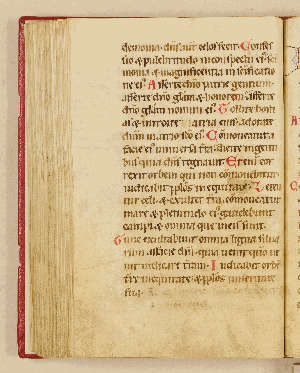 demonia dn̄s aut̄ celos fecit Confes
sio & pulchritudo in conspectu eī sci
monia & magnificentia in sc̄ificatio
ne eī Afferte dn̄o patrie gentium
afferte dn̄o gl̄am & honorem afferte
dn̄o gl̄am nomini eī Tollite hosti
as & introite atria eī adorate
dn̄m in atrio sc̄o eī Comoueatur a
facie eī uniuersa t̄ra dicite in gentib
quia dn̄s regnauit Etenī cor
rexit orbem qui non cōmouebitur
iudicabit pp̄los in equitate Leten
tur celi & exultet t̄ra cōmoueatur
mare & plenitudo eī gaudebunt
campi & omnia que in eis sunt
Tunc exultabunt omnia ligna silua
rum a facie dn̄i quia uenit qm̄ ue
nit iudicare t̄ram Iudicabit orbē
t̄re in equitate & pp̄los in ueritate
sua